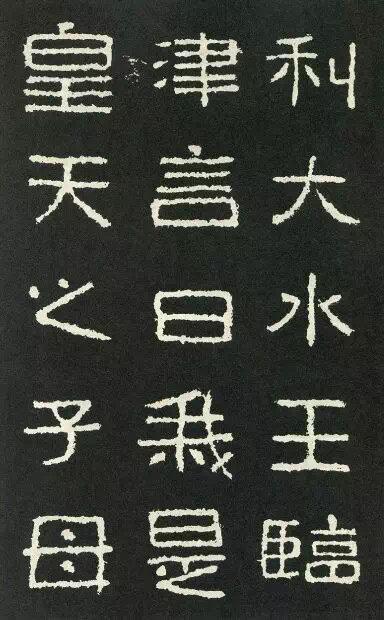 利大水王臨
津言曰我是
皇天之子母